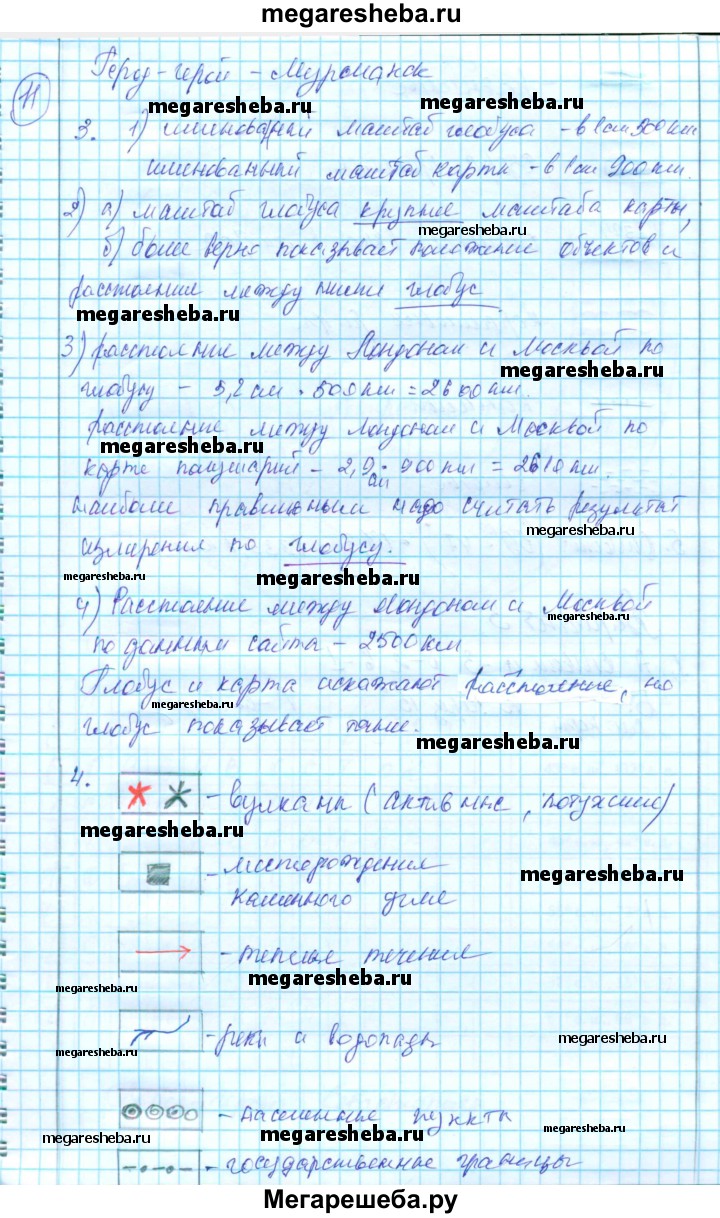 megaresheba.ru
11
Город-герой - Мурманск
megaresheba.ru megaresheba.ru
3. 1) именованный масштаб глобуса - в 1 см 500 км
именованный масштаб карты - в 1 см 900 км.
2) а) масштаб глобуса крупнее масштаба карты,
megaresheba.ru
б) более верно показывает положение объектов и
расстояние между ними глобус
megaresheba.ru
3) расстояние между Лондоном и Москвой по
megaresheba.ru
глобусу - 5,2 см · 500 км = 2600 км.
расстояние между Лондоном и Москвой по
megaresheba.ru
карте полушарий - 2,9 см · 900 км = 2610 км.
наиболее правильным надо считать результат
megaresheba.ru
измерения по глобусу.
megaresheba.ru megaresheba.ru
4) Расстояние между Лондоном и Москвой
по данным сайта - 2500 км
Глобус и карта искажают расстояние, но
megaresheba.ru
глобус показывает точнее.
megaresheba.ru
4. - вулканы (активные, потухшие)
megaresheba.ru
- месторождения
megaresheba.ru
каменного угля
- теплые течения
megaresheba.ru
megaresheba.ru
- реки и водопады
megaresheba.ru
megaresheba.ru
- населенные пункты
megaresheba.ru megaresheba.ru
- государственные границы
megaresheba.ru
Мегарешеба.ру